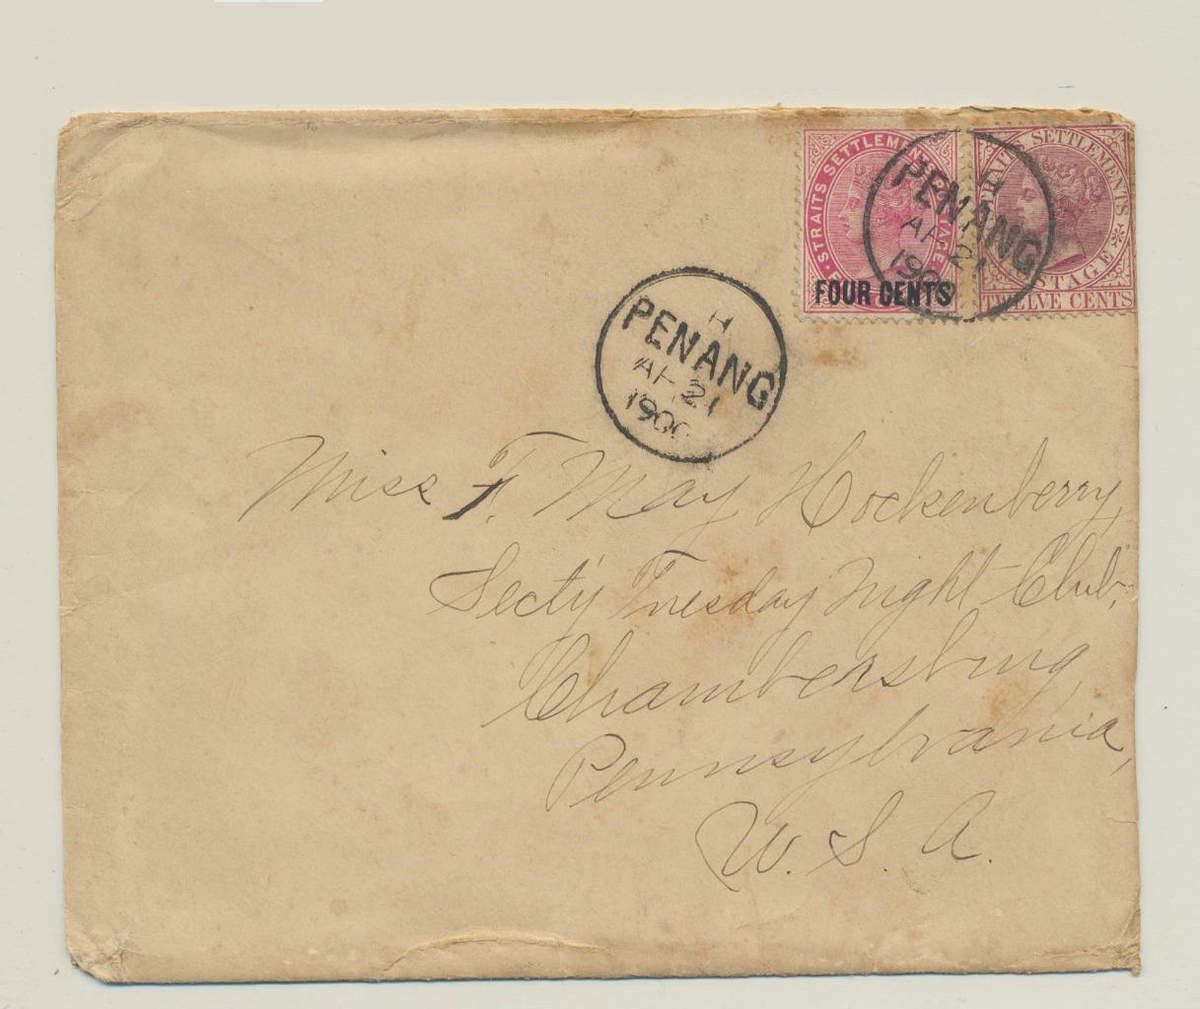 STRAITS SETTLEMENTS POSTAGE
FOUR CENTS
STRAITS SETTLEMENTS
POSTAGE
TWELVE CENTS
H
PENANG
AP 21
1900
H
PENANG
AP 21
1900
Miss F. May Hockenberry,
Sect'y Tuesday Night Club,
Chambersburg,
Pennsylvania,
U. S. A.